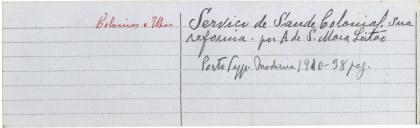 Colonias e Ilhas
Serviço de Saude Colonial. Sua
reforma. por A de S. Maia Leitão
Porto Typ. Moderna 1910 - 38 pag.